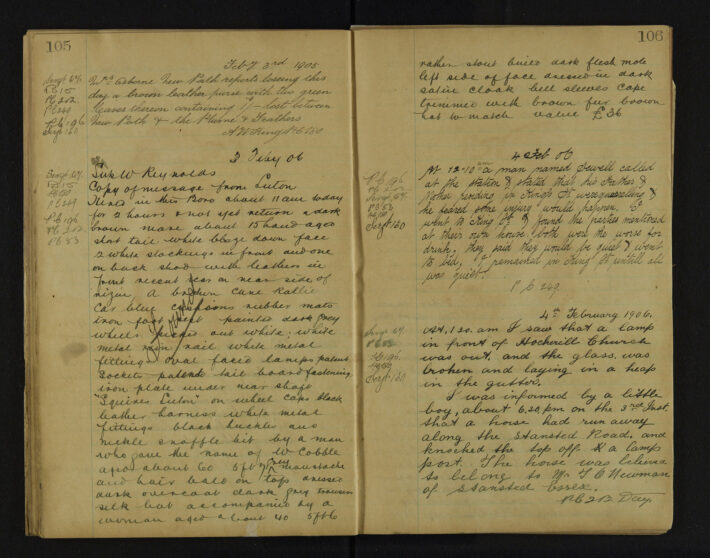 105
Feby 3rd 1905
Mrs Osborne New Path reports loosing this
day a brown leather purse with two green
thereon containing 1/- lost between
New Path & the Plume & Feathers
A W King PC 260
3 Feby 06
Supt W Reynolds
Copy of message from Luton
Hired in this Boro about 11 am today
for 2 hours & not yet return a dark
brown mare about 15 hand aged
short tail white blaze down face
2 white stockings in front and one
on back shod with leathers in
front recent scar on near side of
A brown cane Rallie
Car blue cushions rubber mats
iron foot rest painted dark grey
wheels picked out white, white
metal rail white metal
fittings Oval faced lamps patent
sockets patent tail board fastening
iron plate under near shaft
"Squires Luton" on wheel caps black
leather harness white metal
fittings black buckles and
nickle snaffle bit by a man
who gave the name of W Cobble
age about 60 5ft grey moustache
and hair bald on top dressed
dark overcoat dark grey trousers
silk hat accompanied by a
woman aged about 40 5ft6
106
rather stout build dark flesh mole
left side of face dressed in dark
satin cloak bell sleeves cape
trimmed with brown fur brown
hat to match value £36
4 Feb 06
At 12-10 am a man named Sewell called
at the station & stated that his Father &
Mother residing in King's St were quarrelling &
he feared some injury would happen. I
went to King St & found the parties mentioned
at their own house, both were the worse for
drink, they said they would be quiet & went
to bed, I remained in King St untill all
was quiet.
P C 249
4th February 1906.
At, 1.20. am I saw that a lamp
in front of Hockerill Church
was out, and the glass, was
broken and laying in a heap
in the gutter.
I was informed by a little
boy, about 6.20 pm on the 3rd Inst.
that a horse had run away
along the Stansted Road, and
knocked the top off & a lamp
post. The horse was believed
to belong to Mr T C Newman
of Stansted Essex.
PC 212 Day.